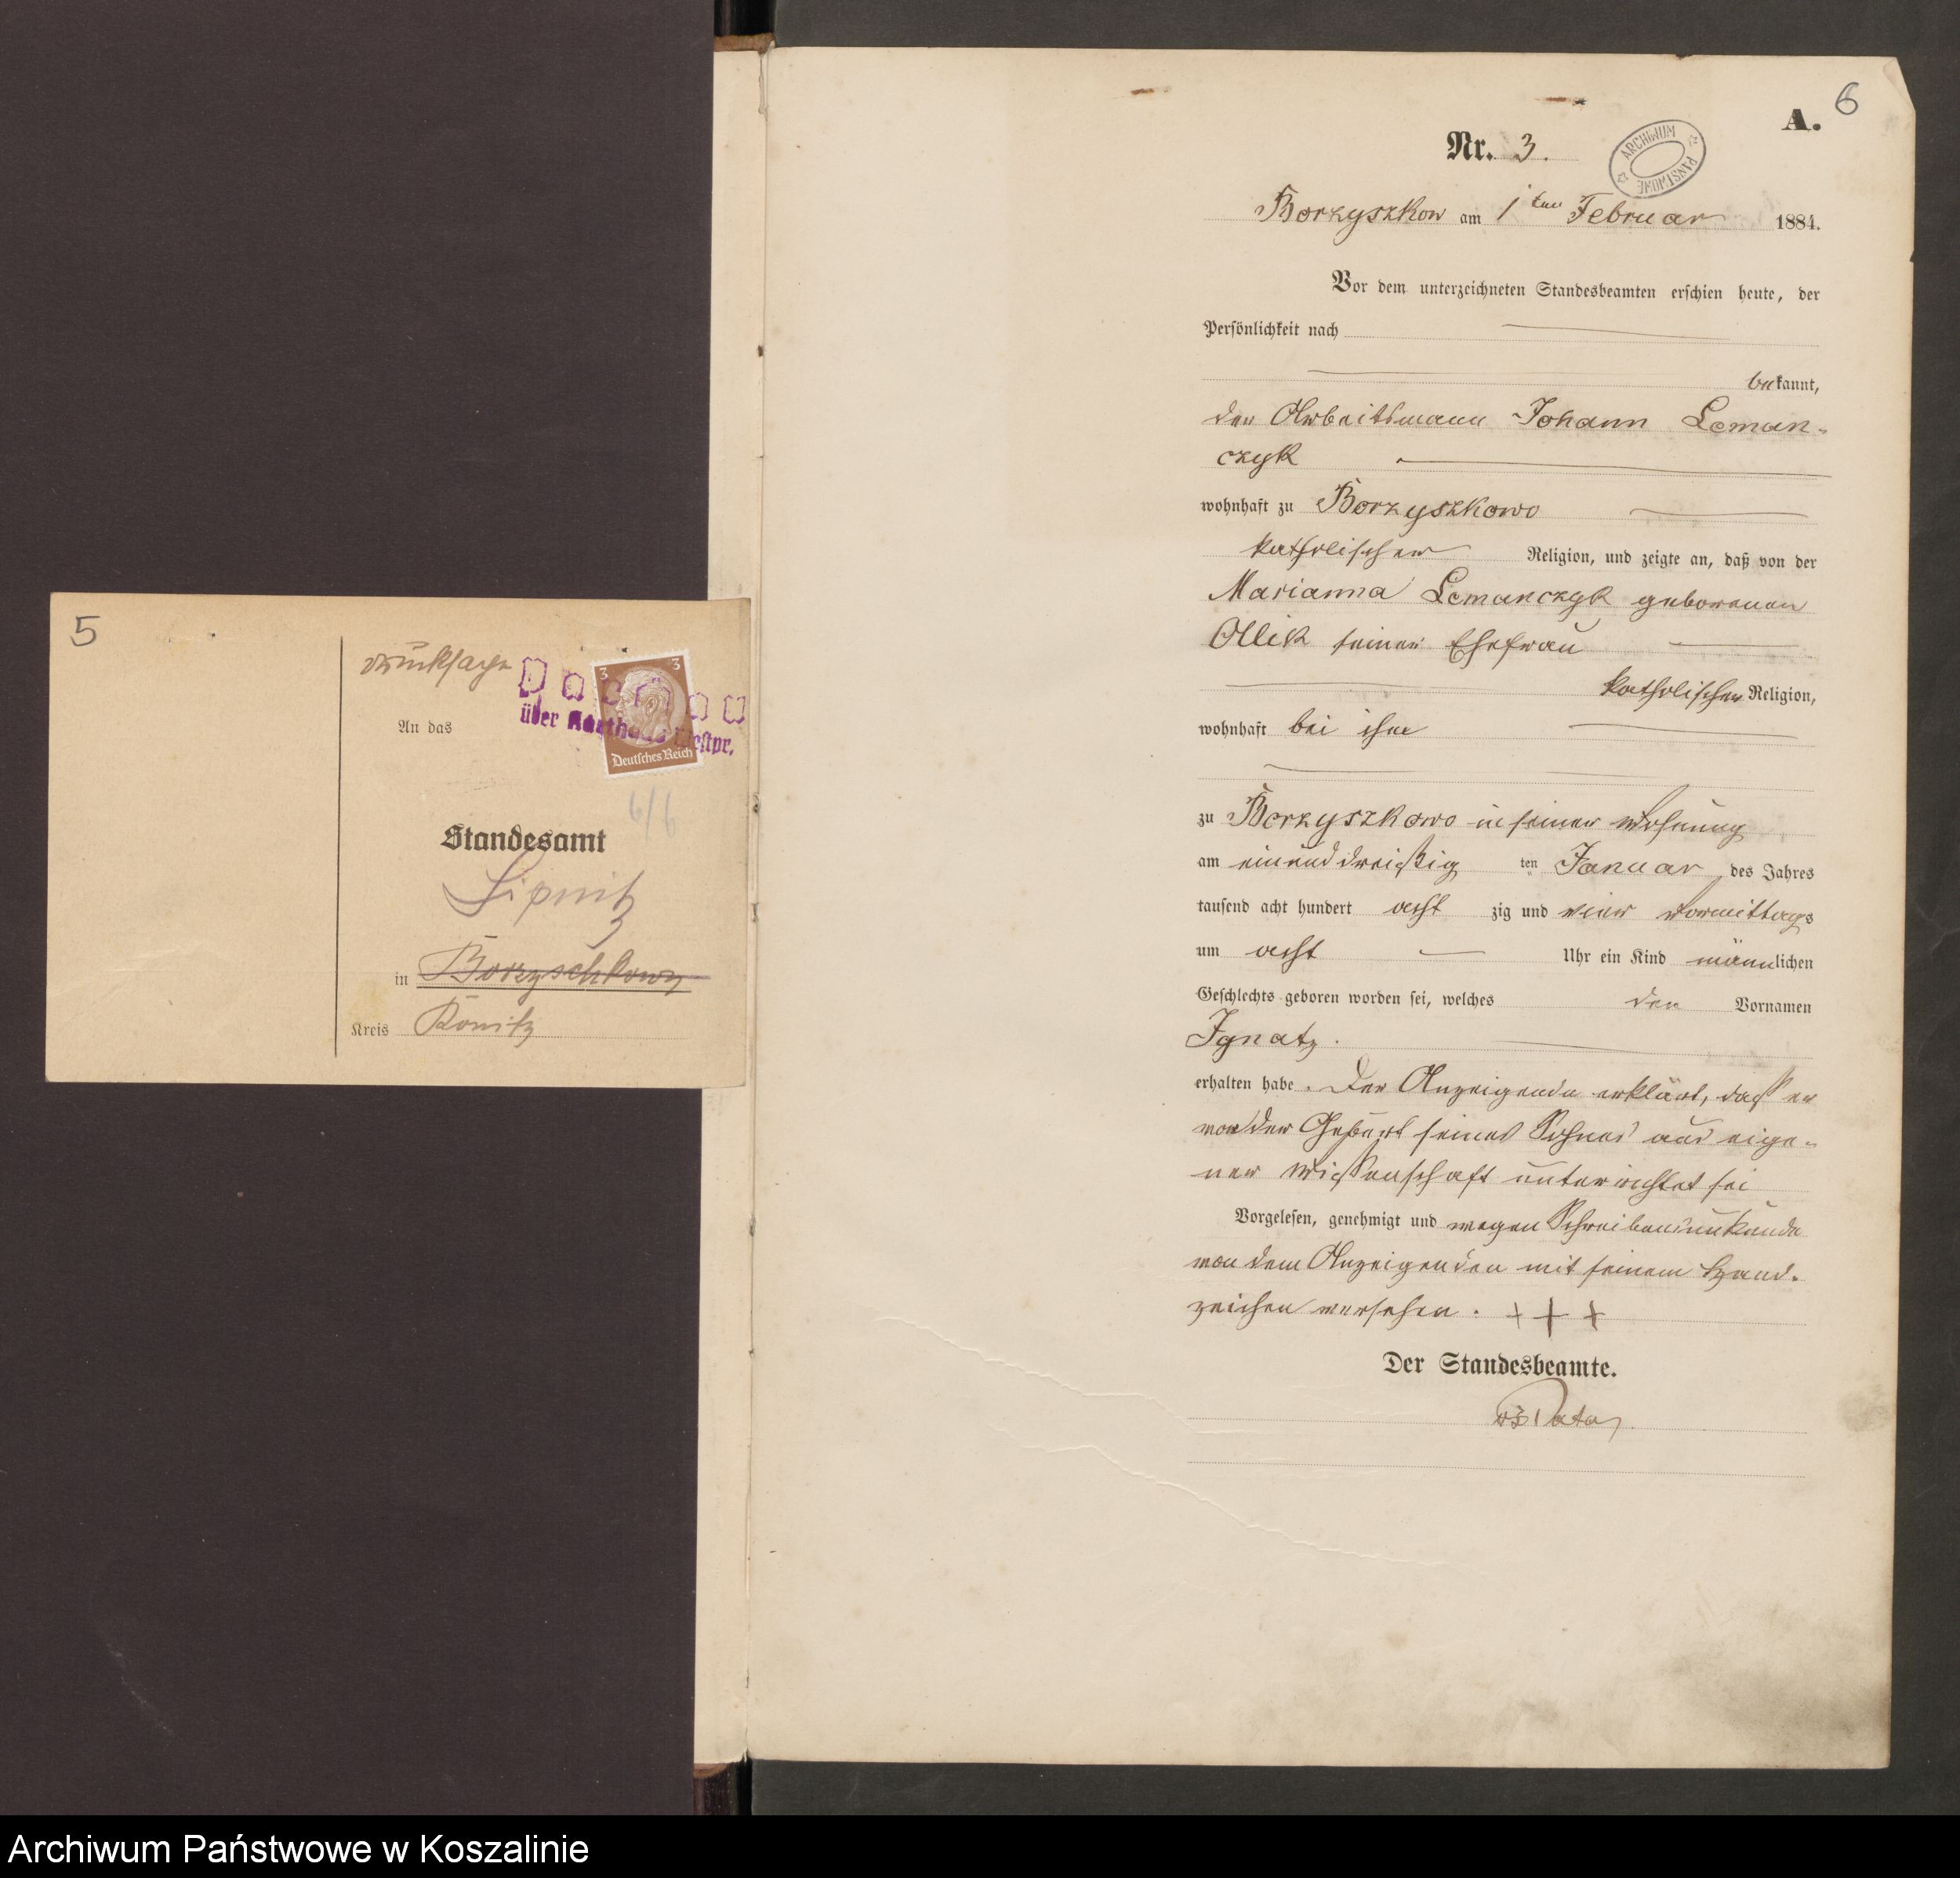 5
Drucksache
über Karthaus Westpr.
3 3
Deutsches Reich
An das
6/6
Standesamt
Lipnitz
in Borzyschkowy
Kreis Konitz
6
A.
Nr. 3.
ARCHIWUM PAŃSTWOWE
Borzyszkow am 1ten Februar 1884.
Vor dem unterzeichneten Standesbeamten erschien heute, der
Persönlichkeit nach
bekannt,
der Arbeitsmann Johann Leman-
czyk
wohnhaft zu Borzyszkowo
katholischer Religion, und zeigte an, daß von der
Marianna Lemanczyk geborenen
Ollik seiner Ehefrau
katholischer Religion,
wohnhaft bei ihm
zu Borzyszkowo in seiner Wohnung
am einunddreißig ten Januar des Jahres
tausend acht hundert acht zig und vier Vormittags
um acht Uhr ein Kind männlichen
Geschlechts geboren worden sei, welches den Vornamen
Ignatz.
erhalten habe. Der Anzeigende erklärt, daß er
von der Geburt seines Sohnes aus eige-
ner Wißenschaft unterrichtet sei
Vorgelesen, genehmigt und wegen Schreibensunkunde
von dem Anzeigenden mit seinem Hand-
zeichen versehen. + + +
Der Standesbeamte.